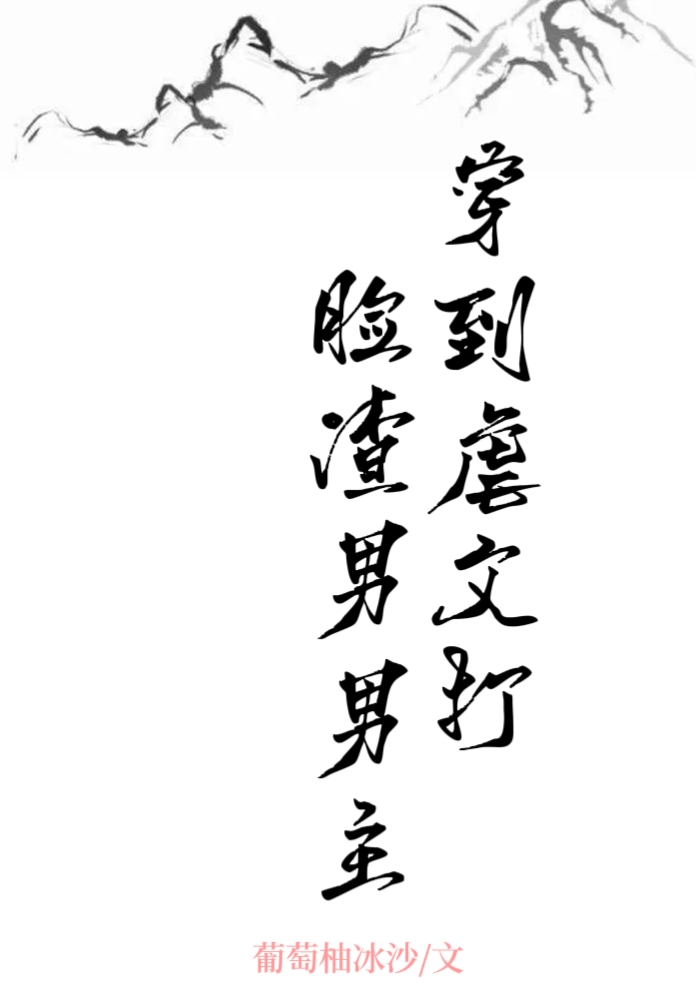 穿到虐文打
脸渣男男主
葡萄柚冰沙/文